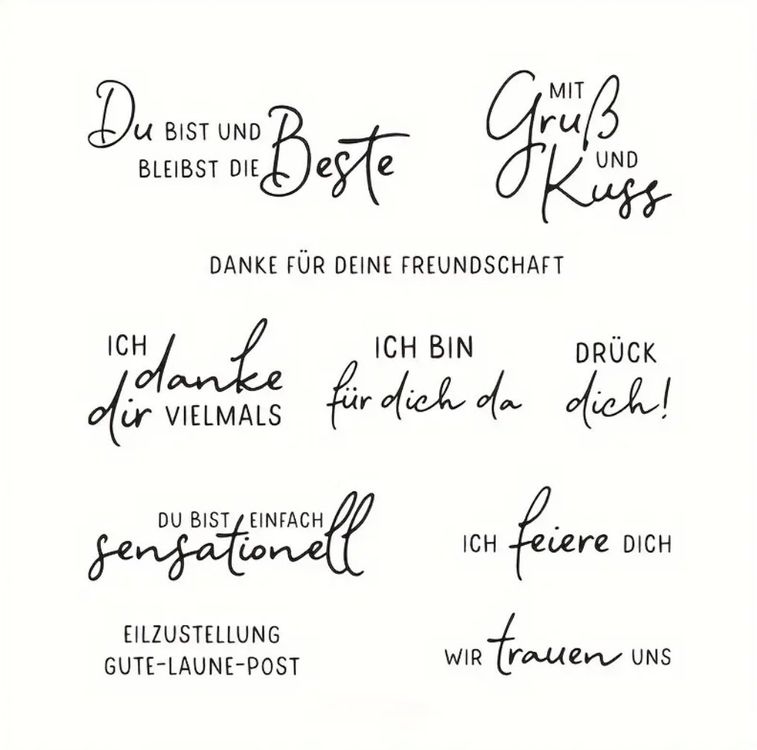 Du BIST UND
BLEIBST DIE Beste
MIT
Gruß
UND
Kuss
DANKE FÜR DEINE FREUNDSCHAFT
ICH
danke
dir VIELMALS
ICH BIN
für dich da
DRÜCK
dich!
DU BIST EINFACH
sensationell
ICH feiere DICH
EILZUSTELLUNG
GUTE-LAUNE-POST
WIR trauen UNS